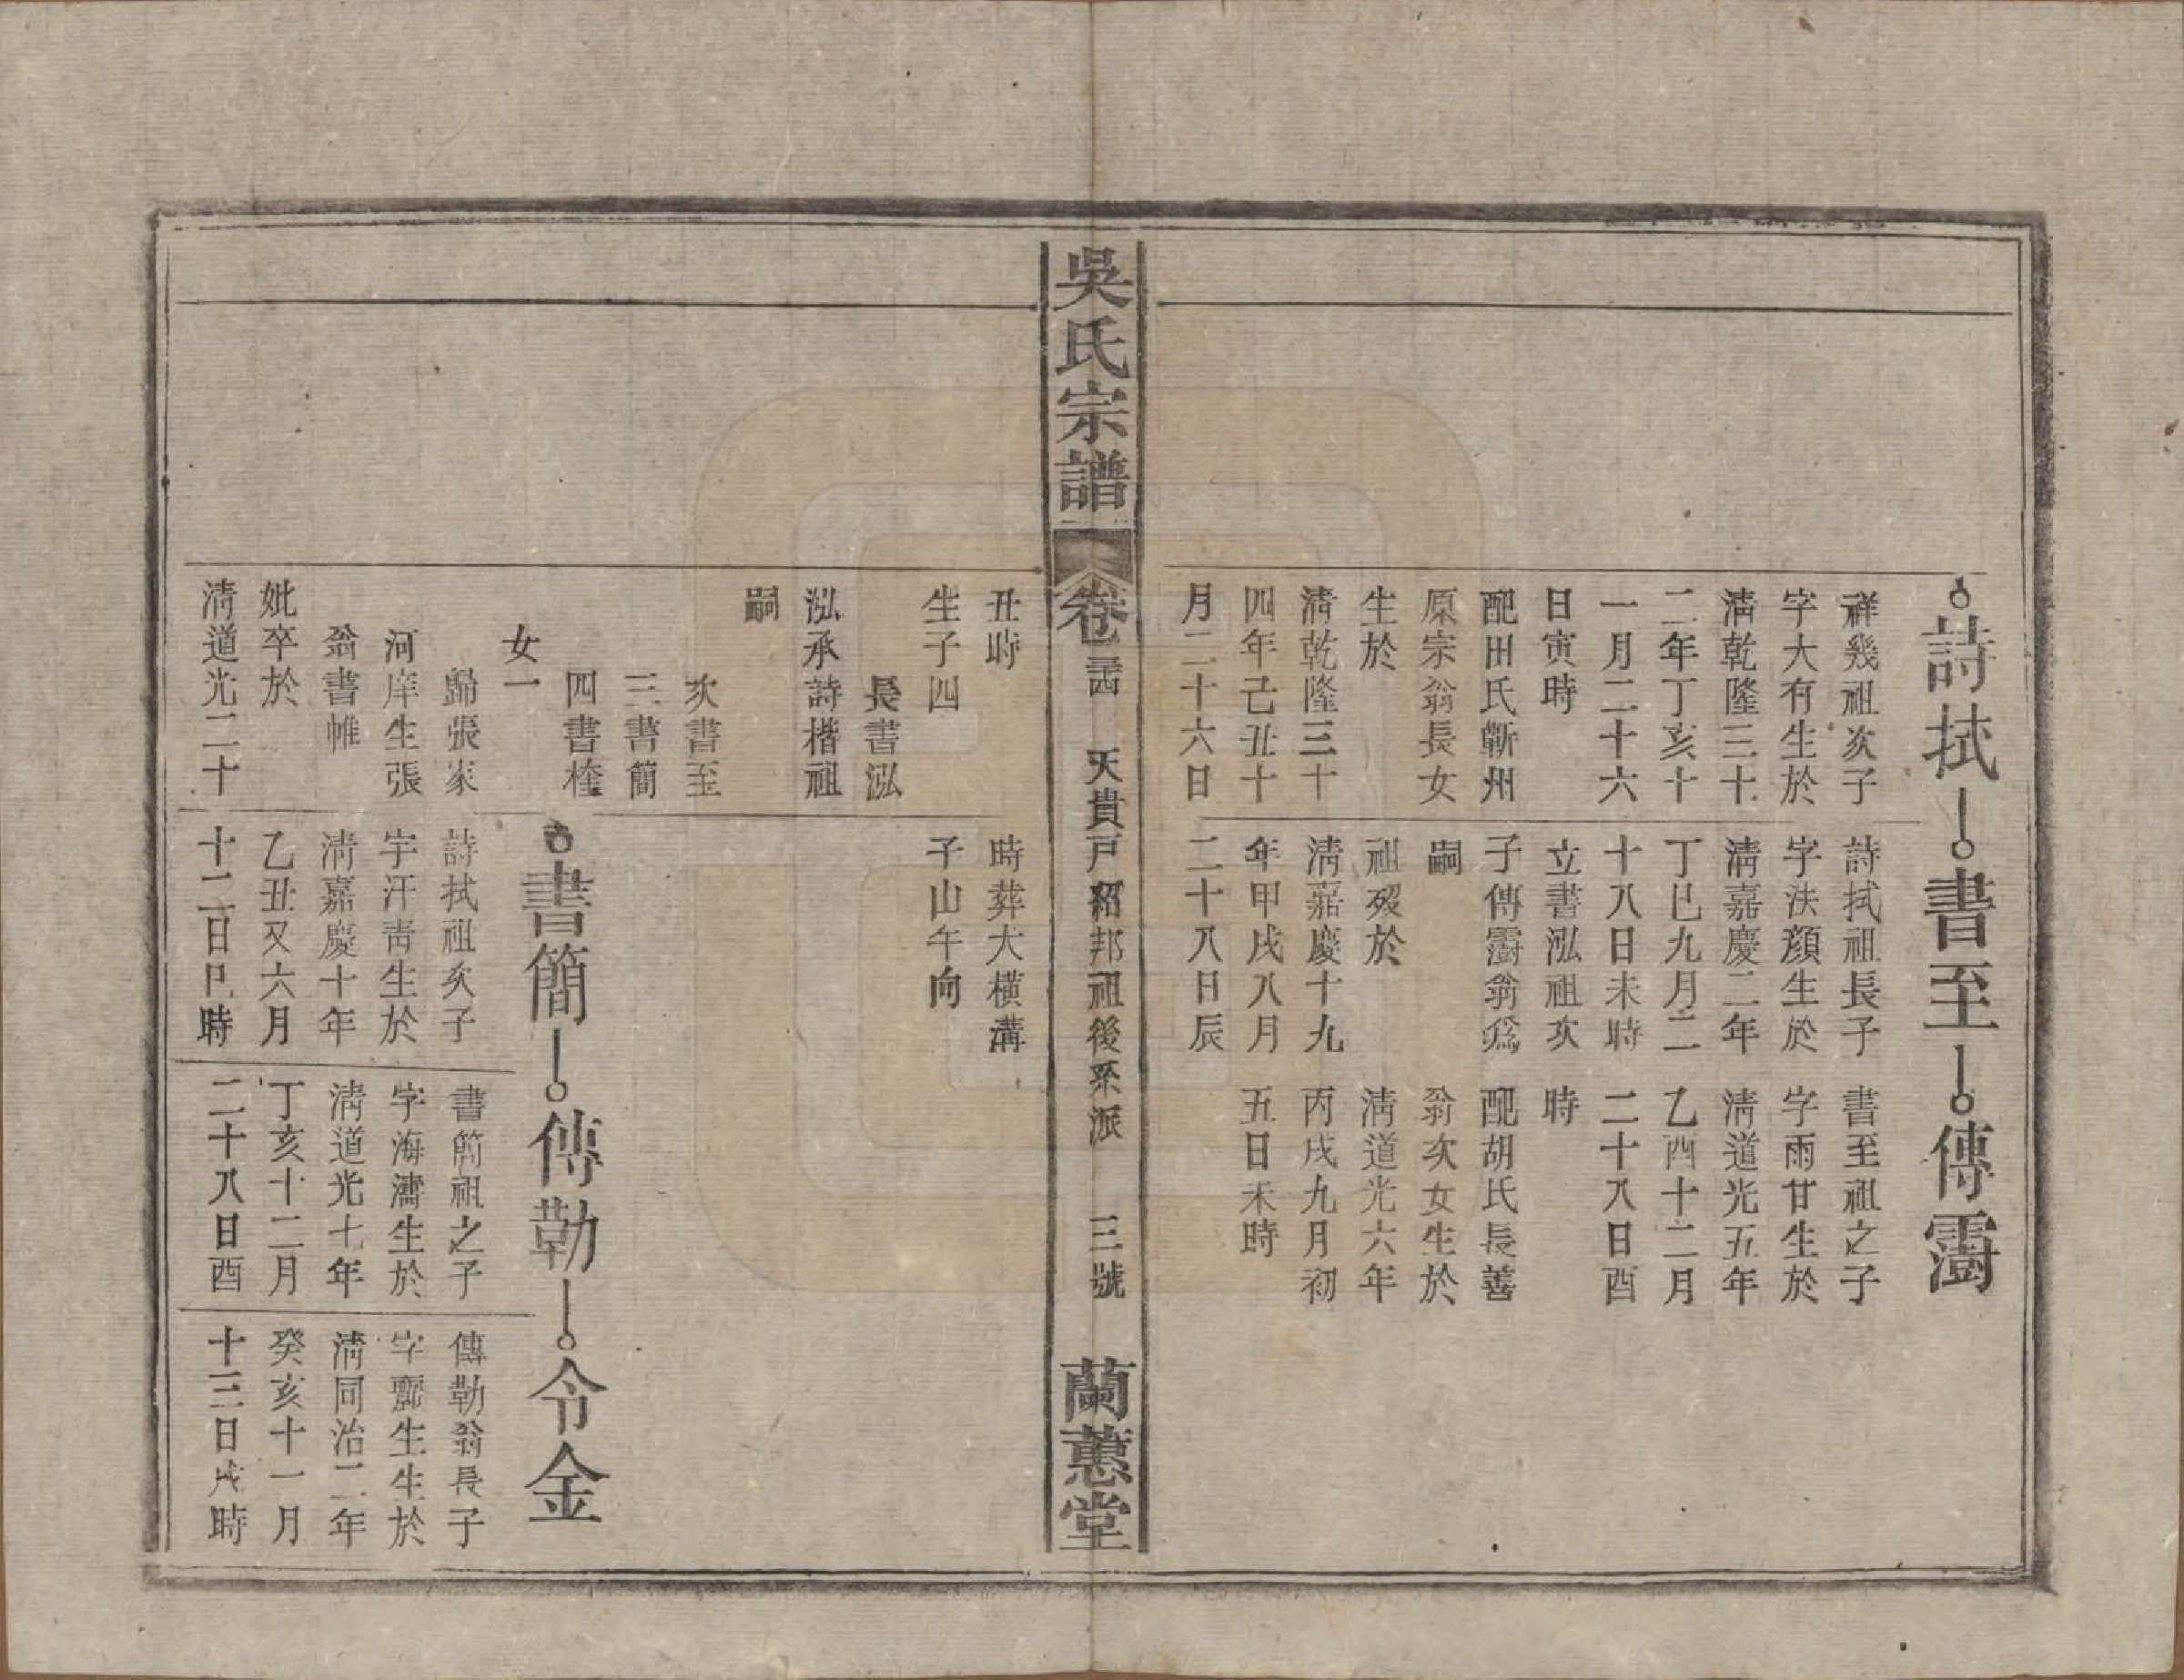 詩拭 書至 傳霌
祥幾祖次子
字大有生於
淸乾隆三十
二年丁亥十
一月二十六
日寅時
配田氏蘄州
原宗翁長女
生於
淸乾隆三十
四年己丑十
月二十六日
詩拭祖長子
字法顔生於
淸嘉慶二年
丁巳九月二
十八日未時
立書泓祖次
子傳霌翁爲
嗣
祖歿於
淸嘉慶十九
年甲戌八月
二十八日辰
書至祖之子
字雨甘生於
淸道光五年
乙酉十二月
二十八日酉
時
配胡氏長善
翁次女生於
淸道光六年
丙戌九月初
五日未時
吳氏宗譜
卷 天貴戸紹邦祖後系派 三號
蘭蕙堂
丑時
生子四
長書泓
泓承詩楷祖
嗣
次書至
三書簡
四書
女一
歸張家
河庠生張
翁書帷
妣卒於
淸道光二十
時葬大橫溝
子山午向
書簡 傳勒 令金
詩拭祖次子
字汗靑生於
淸嘉慶十年
乙丑又六月
十二日巳時
書簡祖之子
字海濤生於
淸道光七年
丁亥十二月
二十八日酉
傳勒翁長子
字麗生生於
淸同治二年
癸亥十一月
十三日戌時